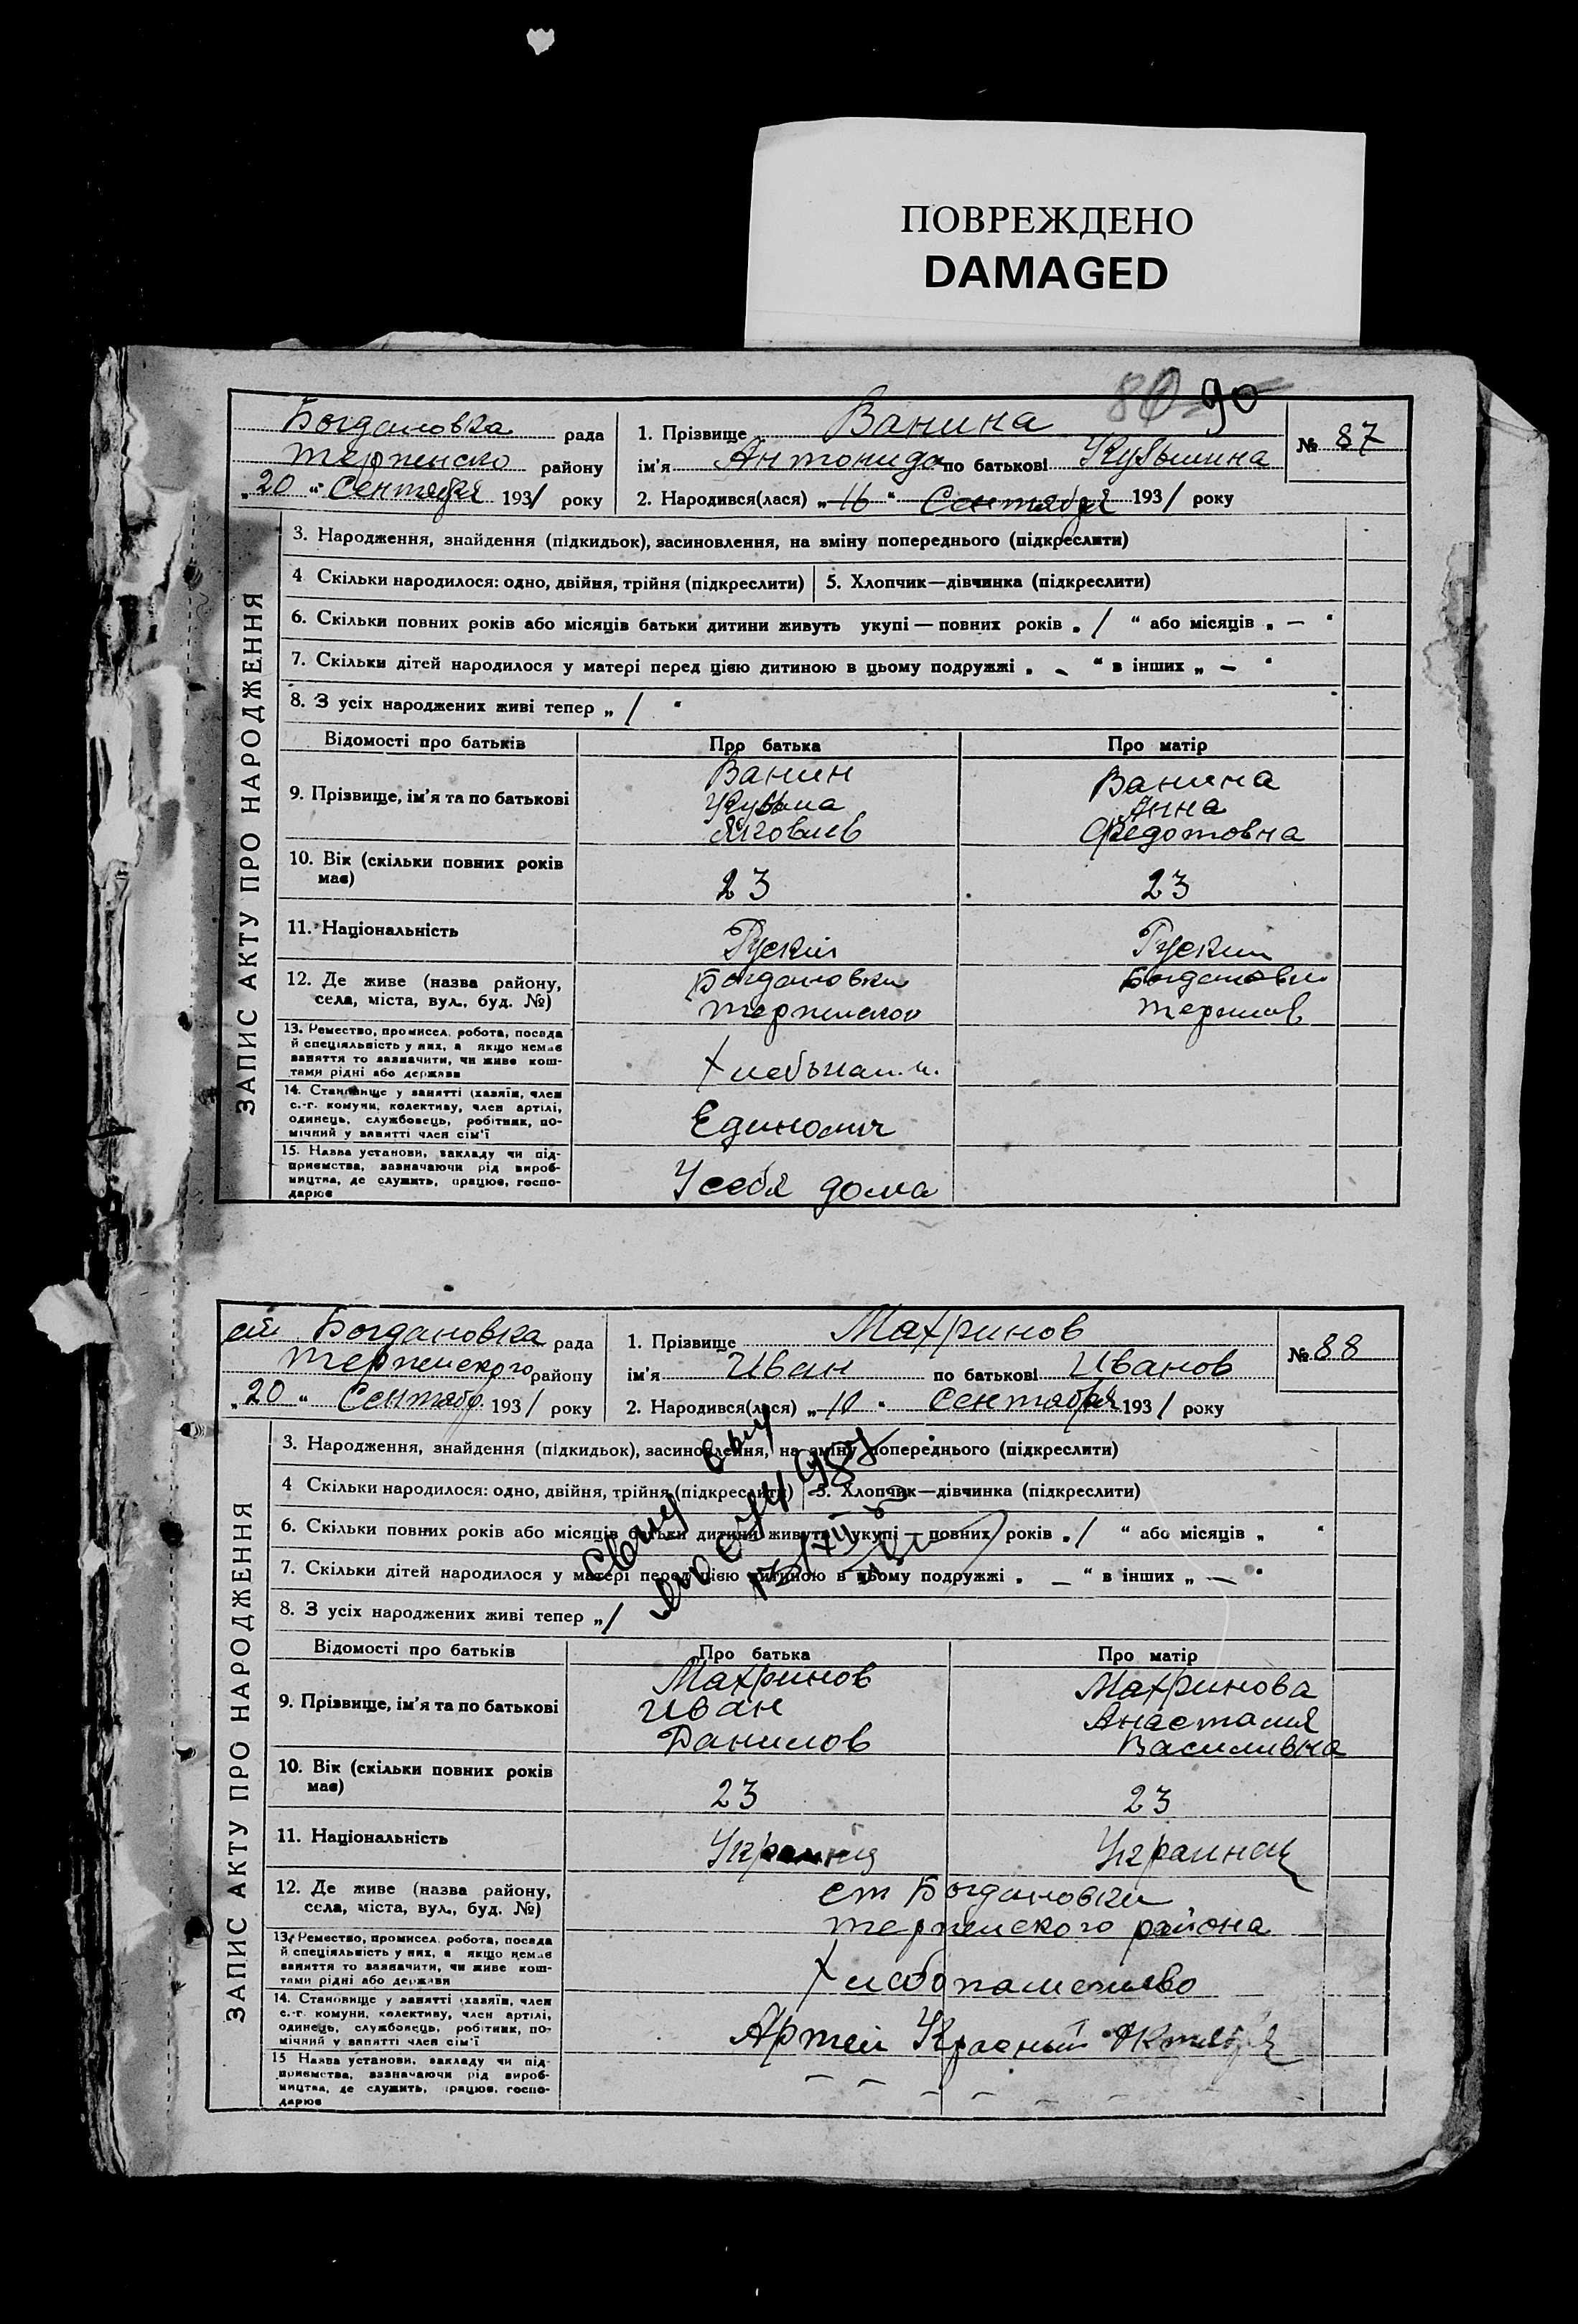 ПОВРЕЖДЕНО
DAMAGED
90
Богдановка рада
Терпенско району
„20“ Сентября 1931 року
1. Прізвище Ванина
ім'я Антонида по батькові Кузьмина
№ 87
2. Народився(лася) „16“ Сентября 1931 року
ЗАПИС АКТУ ПРО НАРОДЖЕННЯ
3. Народження, знайдення (підкидьок), засиновлення, на зміну попереднього (підкреслити)
4 Скільки народилося: одно, двійня, трійня (підкреслити) 5. Хлопчик—дівчинка (підкреслити)
6. Скільки повних років або місяців батьки дитини живуть укупі — повних років „ / “ або місяців „ — “
7. Скільки дітей народилося у матері перед цією дитиною в цьому подружжі „ - “ в інших „ - “
8. З усіх народжених живі тепер „ / “
Відомості про батьків Про батька Про матір
9. Прізвище, ім'я та по батькові
Ванин Ванина
Кузьма Анна
Яковлев Федотовна
10. Вік (скільки повних років має)
23 23
11. Національність
Руский Руский
12. Де живе (назва району, села, міста, вул., буд. №)
Богдановки
13. Ремество, промисел, робота, посада й спеціяльність у них, а якщо немає заняття то зазначити, чи живе коштами рідні або держави
14. Становище у занятті (хазяїн, член с.-г. комуни, колективу, член артілі, одинець, службовець, робітник, помічний у занятті член сім'ї
Единолич
15. Назва установи, закладу чи підприємства, зазначаючи рід виробництва, де служить, працює, господарює
У себя дома
Богдановка рада
Терпенского району
„20“ Сентябр. 1931 року
1. Прізвище Махринов
ім'я Иван по батькові Иванов
№ 88
2. Народився(лася) „10“ Сентября 1931 року
ЗАПИС АКТУ ПРО НАРОДЖЕННЯ
3. Народження, знайдення (підкидьок), засиновлення, на зміну попереднього (підкреслити)
4 Скільки народилося: одно, двійня, трійня (підкреслити) 5. Хлопчик—дівчинка (підкреслити)
6. Скільки повних років або місяців батьки дитини живуть укупі — повних років „ / “ або місяців „ “
7. Скільки дітей народилося у матері перед цією дитиною в цьому подружжі „ — “ в інших „ — “
8. З усіх народжених живі тепер „ /
Відомості про батьків Про батька Про матір
9. Прізвище, ім'я та по батькові
Махринов Махринова
Иван Анастасия
Данилов Василивна
10. Вік (скільки повних років має)
23 23
11. Національність
Украинец
12. Де живе (назва району, села, міста, вул., буд. №)
ст Богдановки
терпенского района
13. Ремество, промисел, робота, посада й спеціяльність у них, а якщо немає заняття то зазначити, чи живе коштами рідні або держави
Хлебопашество
14. Становище у занятті (хазяїн, член с.-г. комуни, колективу, член артілі, одинець, службовець, робітник, помічний у занятті член сім'ї
Артей Красный Октября
15 Назва установи, закладу чи підприємства, зазначаючи рід виробництва, де служить, працює, господарює